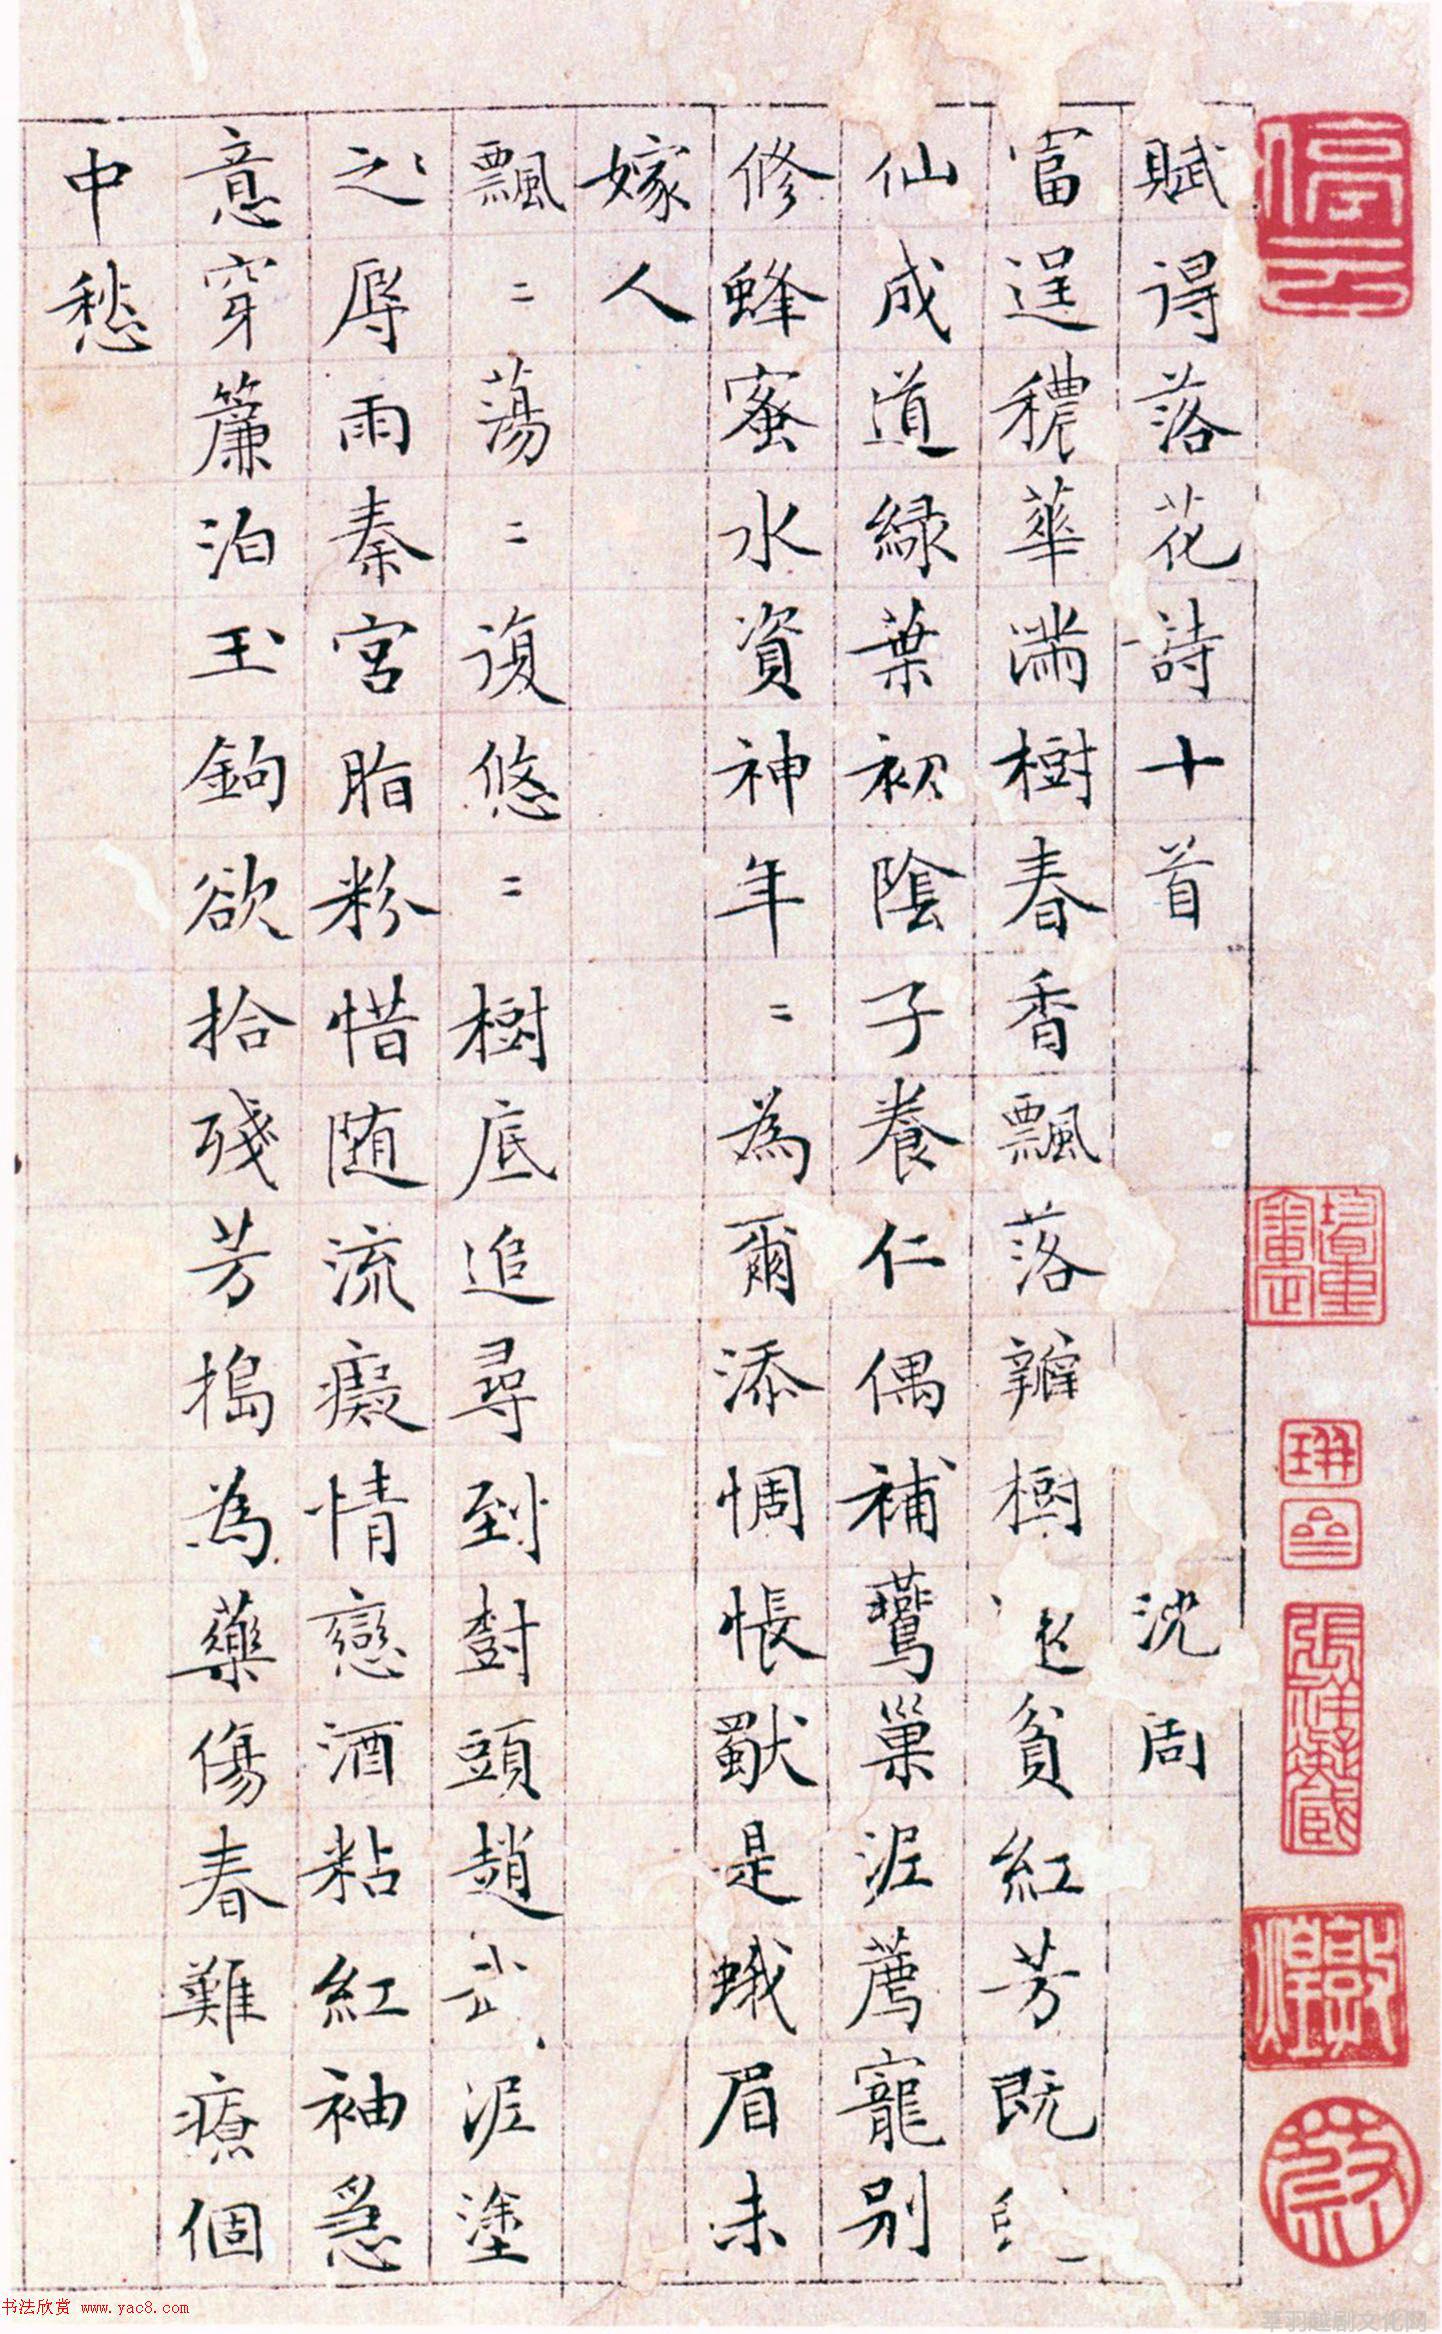 賦得落花詩十首 沈周
富逞穠華滿樹春香飄落瓣樹還貧紅芳既
仙成道綠葉初陰子養仁偶補鶯巢泥薦寵別
修蜂蜜水資神年〻為爾添惆悵獸是蛾眉未
嫁人
飄〻蕩〻復悠〻樹底追尋到樹頭趙武泥塗
之辱雨秦宮脂粉惜随流癡情戀酒粘紅袖急
意穿簾泊玉鉤欲拾殘芳搗為藥傷春難療個
中愁
停雲
敦煌
书法欣赏 www.yac8.com
莘羽越剧文化网